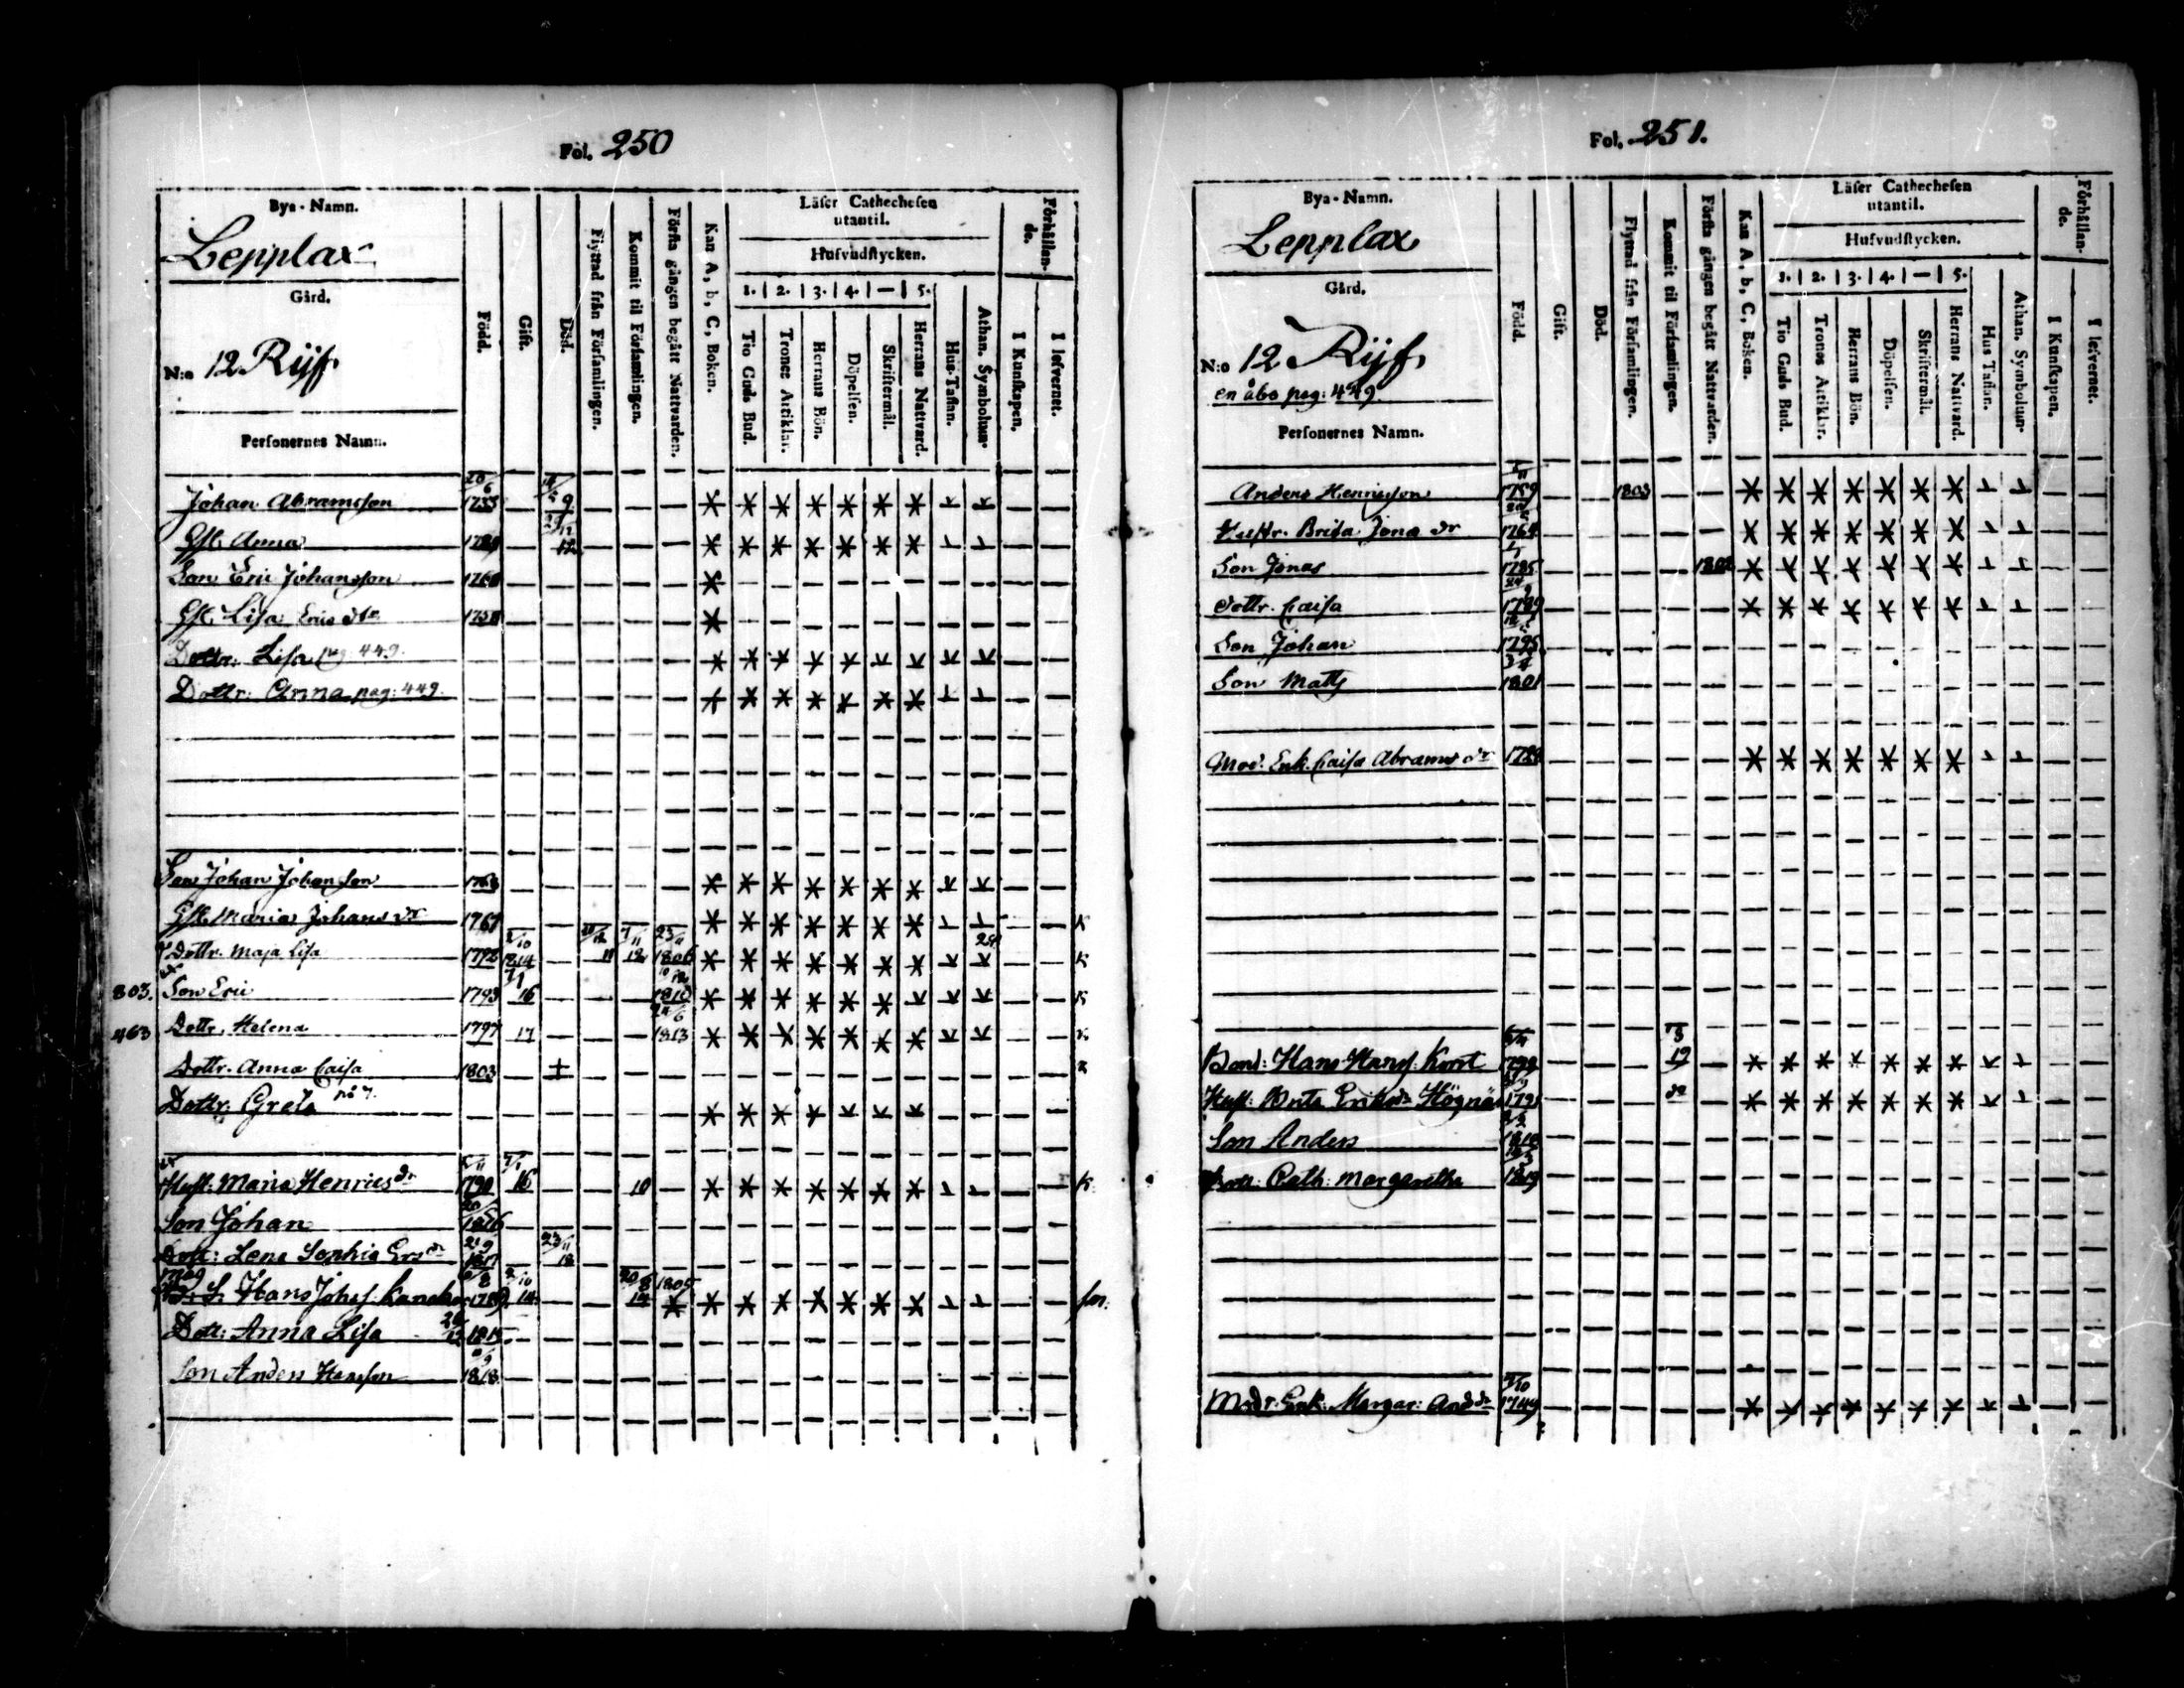 Fol. 250
Bya-Namn.
Lepplax
Gård.
N:o 12 Rijf
Personernes Namn.
Född.
Gift.
Död.
Flyttad från Församlingen.
Kommit til Församlingen.
Första gången begått Nattvarden.
Kan A, b, C, Boken.
Läser Cathechesen utantil.
Hufvudstycken.
1. 2. 3. 4. — 5.
Tio Guds Bud.
Trones Artiklar.
Herrans Bön.
Döpelsen.
Skriftermål.
Herrans Nattvard.
Hus-Taflan.
Athan. Symbolum.
Förhållan-de.
I Kunskapen.
I lefvernet.
Johan Abramsson 20/6 1733 9
Hst. Anna 12
Son Eric Johansson 1760
Hst. Lisa Erics dtr 1758
Dottr. Lisa pag. 449.
Dottr. Anna pag: 449.
Son Johan Johansson
Hst. Maria Johans dr 1767 K
Dottr. Maja Lisa 1792 1814 11 12 1806 K
803. Son Eric 1793 16 1810 K
463 Dottr. Helena 1797 17 24/6 1813
Dottr. Anna Caisa 1803 +
Dottr. Greta no 7.
Hust. Maria Henricsdr 1790 16 10 K
Son Johan 1816
Dott: Lena Sophia Ersdr 1817 23/11 18
Måg Hans Johs. 1789 14 14 1805
Dott: Anna Lisa
Son Anders Hansson 1818
Fol. 251.
Bya-Namn.
Lepplax
Gård.
N:o 12 Rijf
en åbo pag: 449.
Personernes Namn.
Född.
Gift.
Död.
Flyttad från Församlingen.
Kommit til Församlingen.
Första gången begått Nattvarden.
Kan A, b, C, Boken.
Läser Cathechesen utantil.
Hufvudstycken.
1. 2. 3. 4. — 5.
Tio Guds Bud.
Trones Artiklar.
Herrans Bön.
Döpelsen.
Skriftermål.
Herrans Nattvard.
Hus Taflan.
Athan. Symbolum.
Förhållan-de.
I Kunskapen.
I lefvernet.
Anders Henricsson 1759 1803
Hustr. Brita Jonadr 1764
Son Jonas 1785 1802
Dottr. Caisa 1789
Son Johan 1795
Son Matts 1801
Mod. Enk. Caisa Abramsdr
Bond: Hans Hans: Korst 19
Hust: Brita Eriksdr Högnäs
Son Anders 1818
Dott: Cath: Margaretha 1819
Modr. Enk. Margar: Andsdr 1749